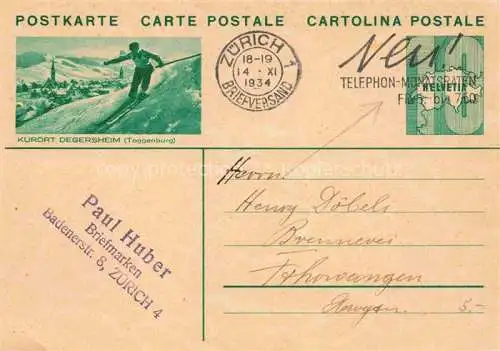 POSTKARTE CARTE POSTALE CARTOLINA POSTALE
ZÜRICH 1
18-19
14 · XI
1934
BRIEFVERSAND
Neu!
TELEPHON-MONATSRATEN
HELVETIA
KURORT DEGERSHEIM (Toggenburg)
Paul Huber
Briefmarken
Badenerstr. 8, ZÜRICH 4
Herrn
Henry Döbeli
Brennerei
5.-